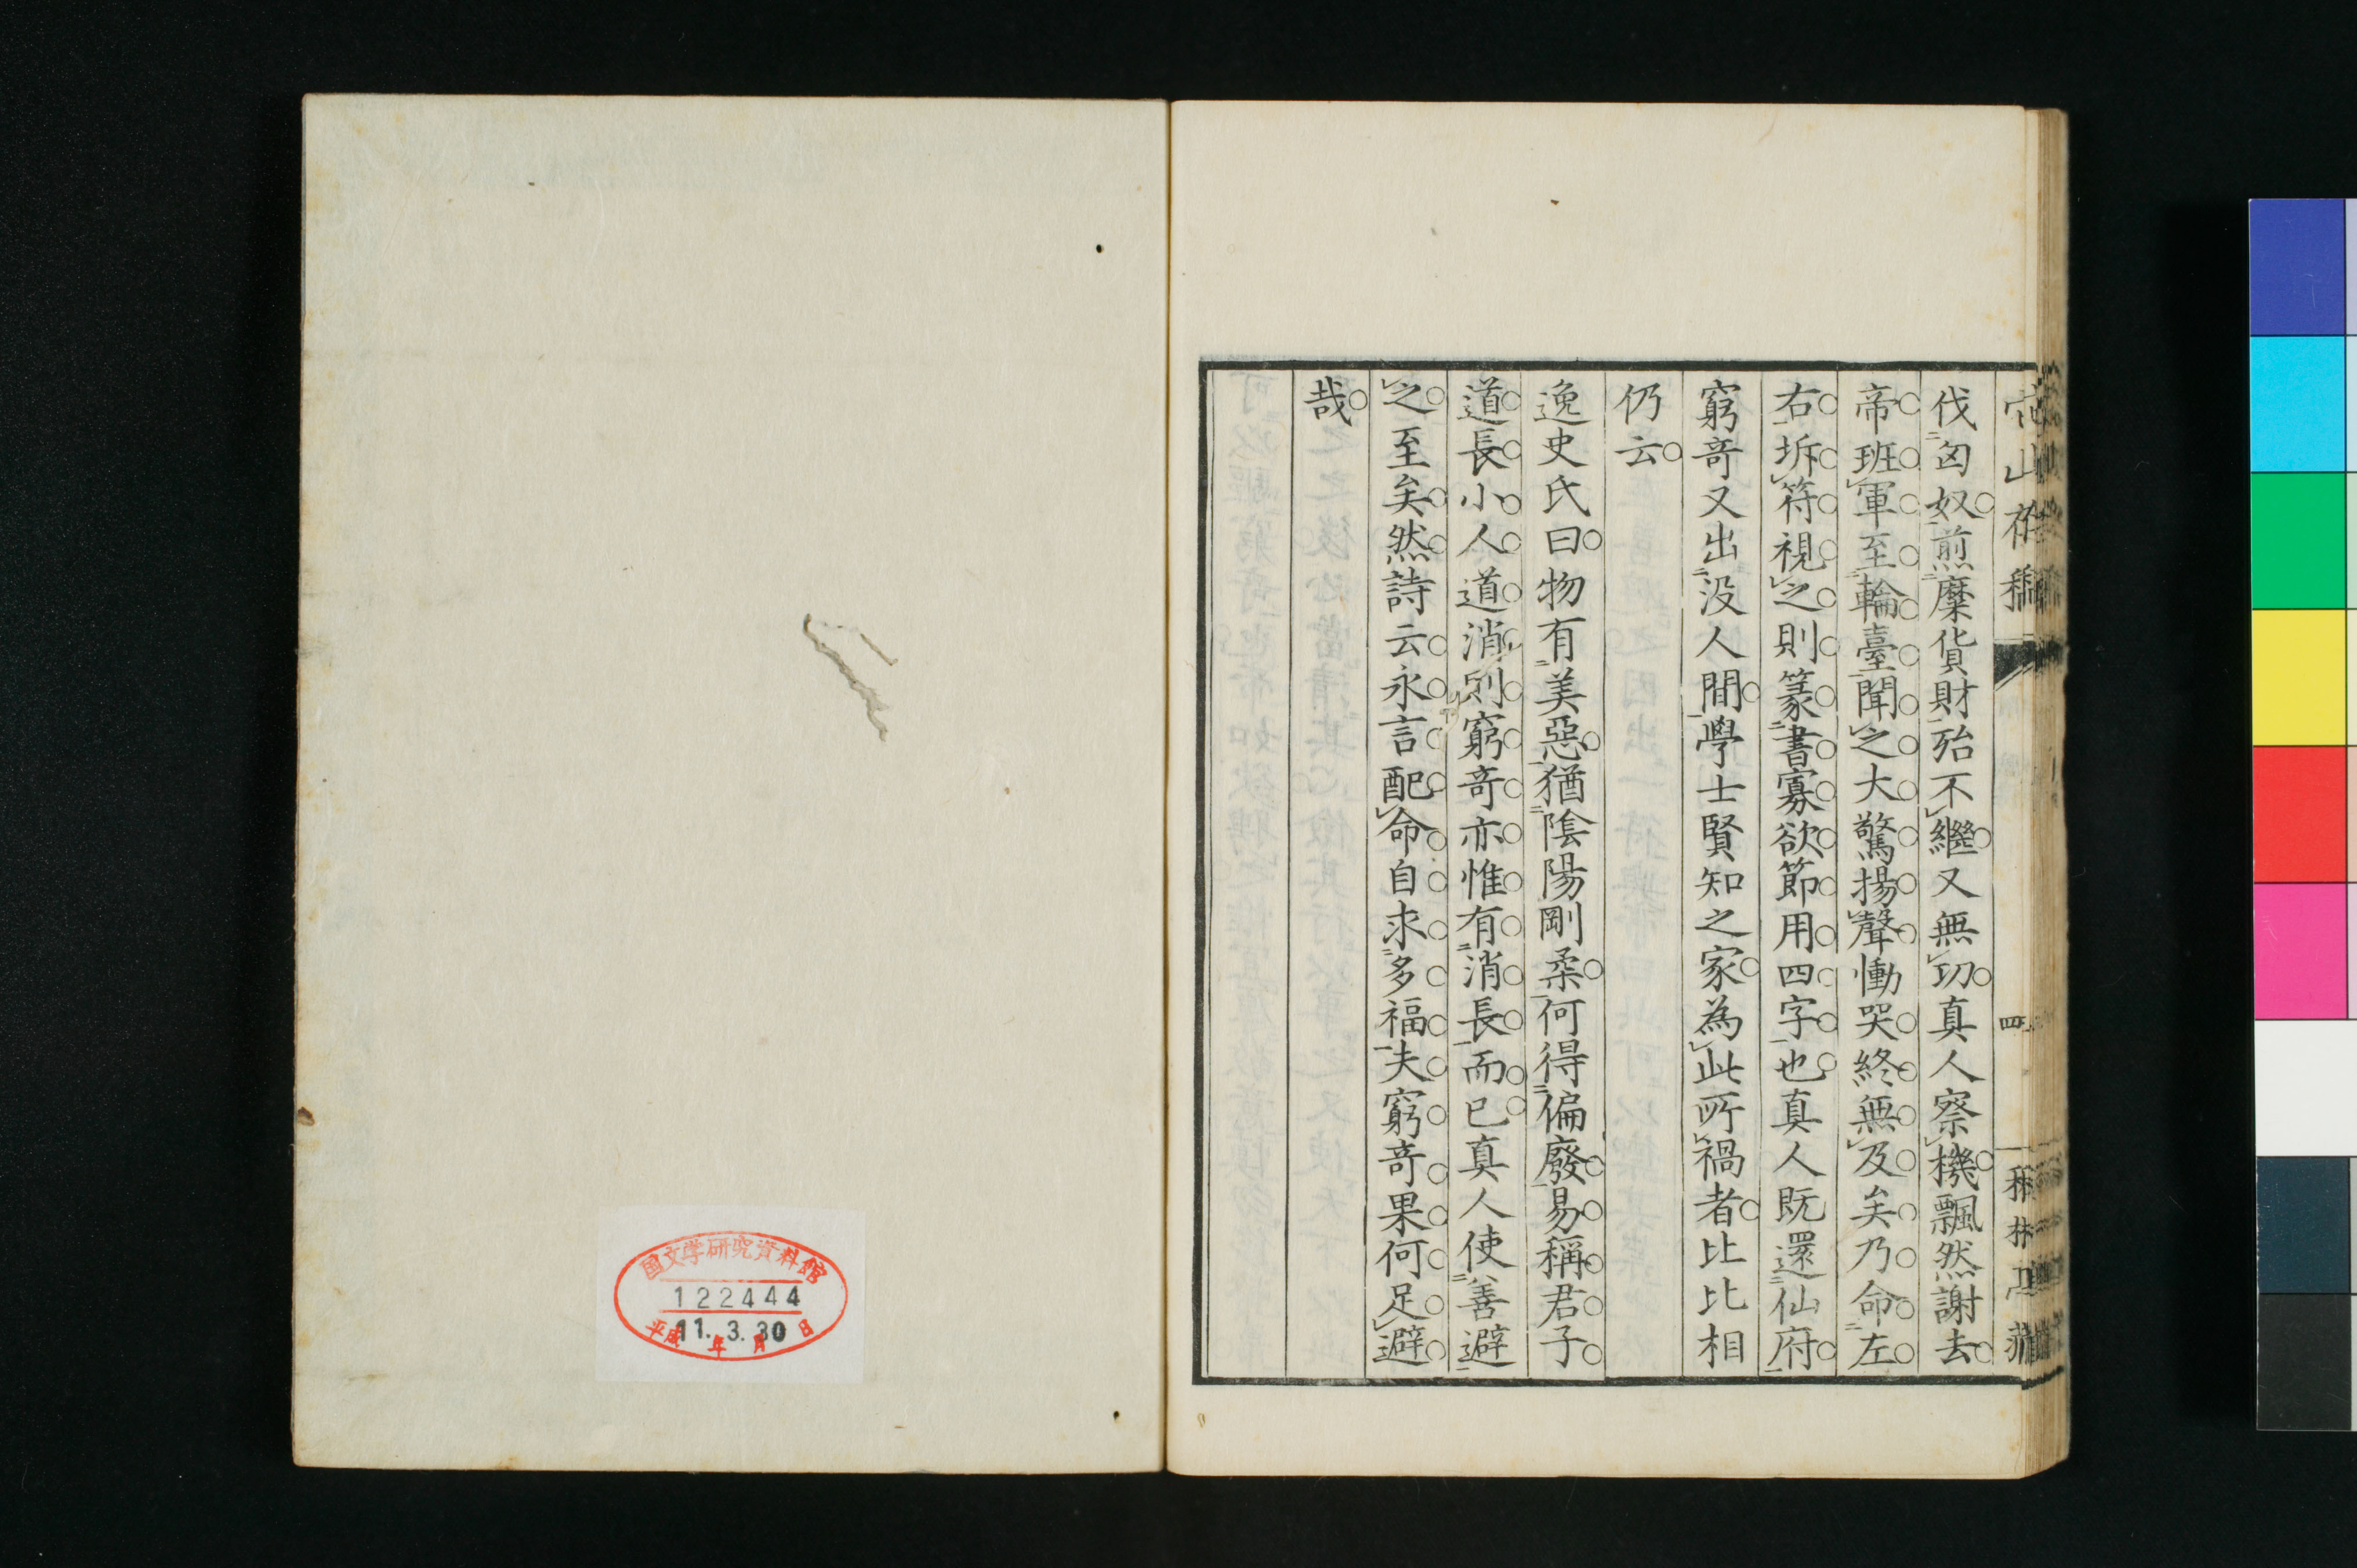 伐匈奴煎糜貨財殆不繼又無功真人察機飄然謝去
帝班軍至輪臺聞之大驚揚聲慟哭終無及矣乃命左
右坼符視之則篆書寡欲節用四字也真人既還仙府
窮竒又出没人間學士賢知之家為此所禍者比比相
仍云
逸史氏曰物有美惡猶陰陽剛柔何得偏廢易稱君子
道長小人道消則窮竒亦惟有消長而已真人使善避
之至矣然詩云永言配命自求多福夫窮竒果何足避
哉
四
国文学研究資料館
122444
平成11.3.30
年月日